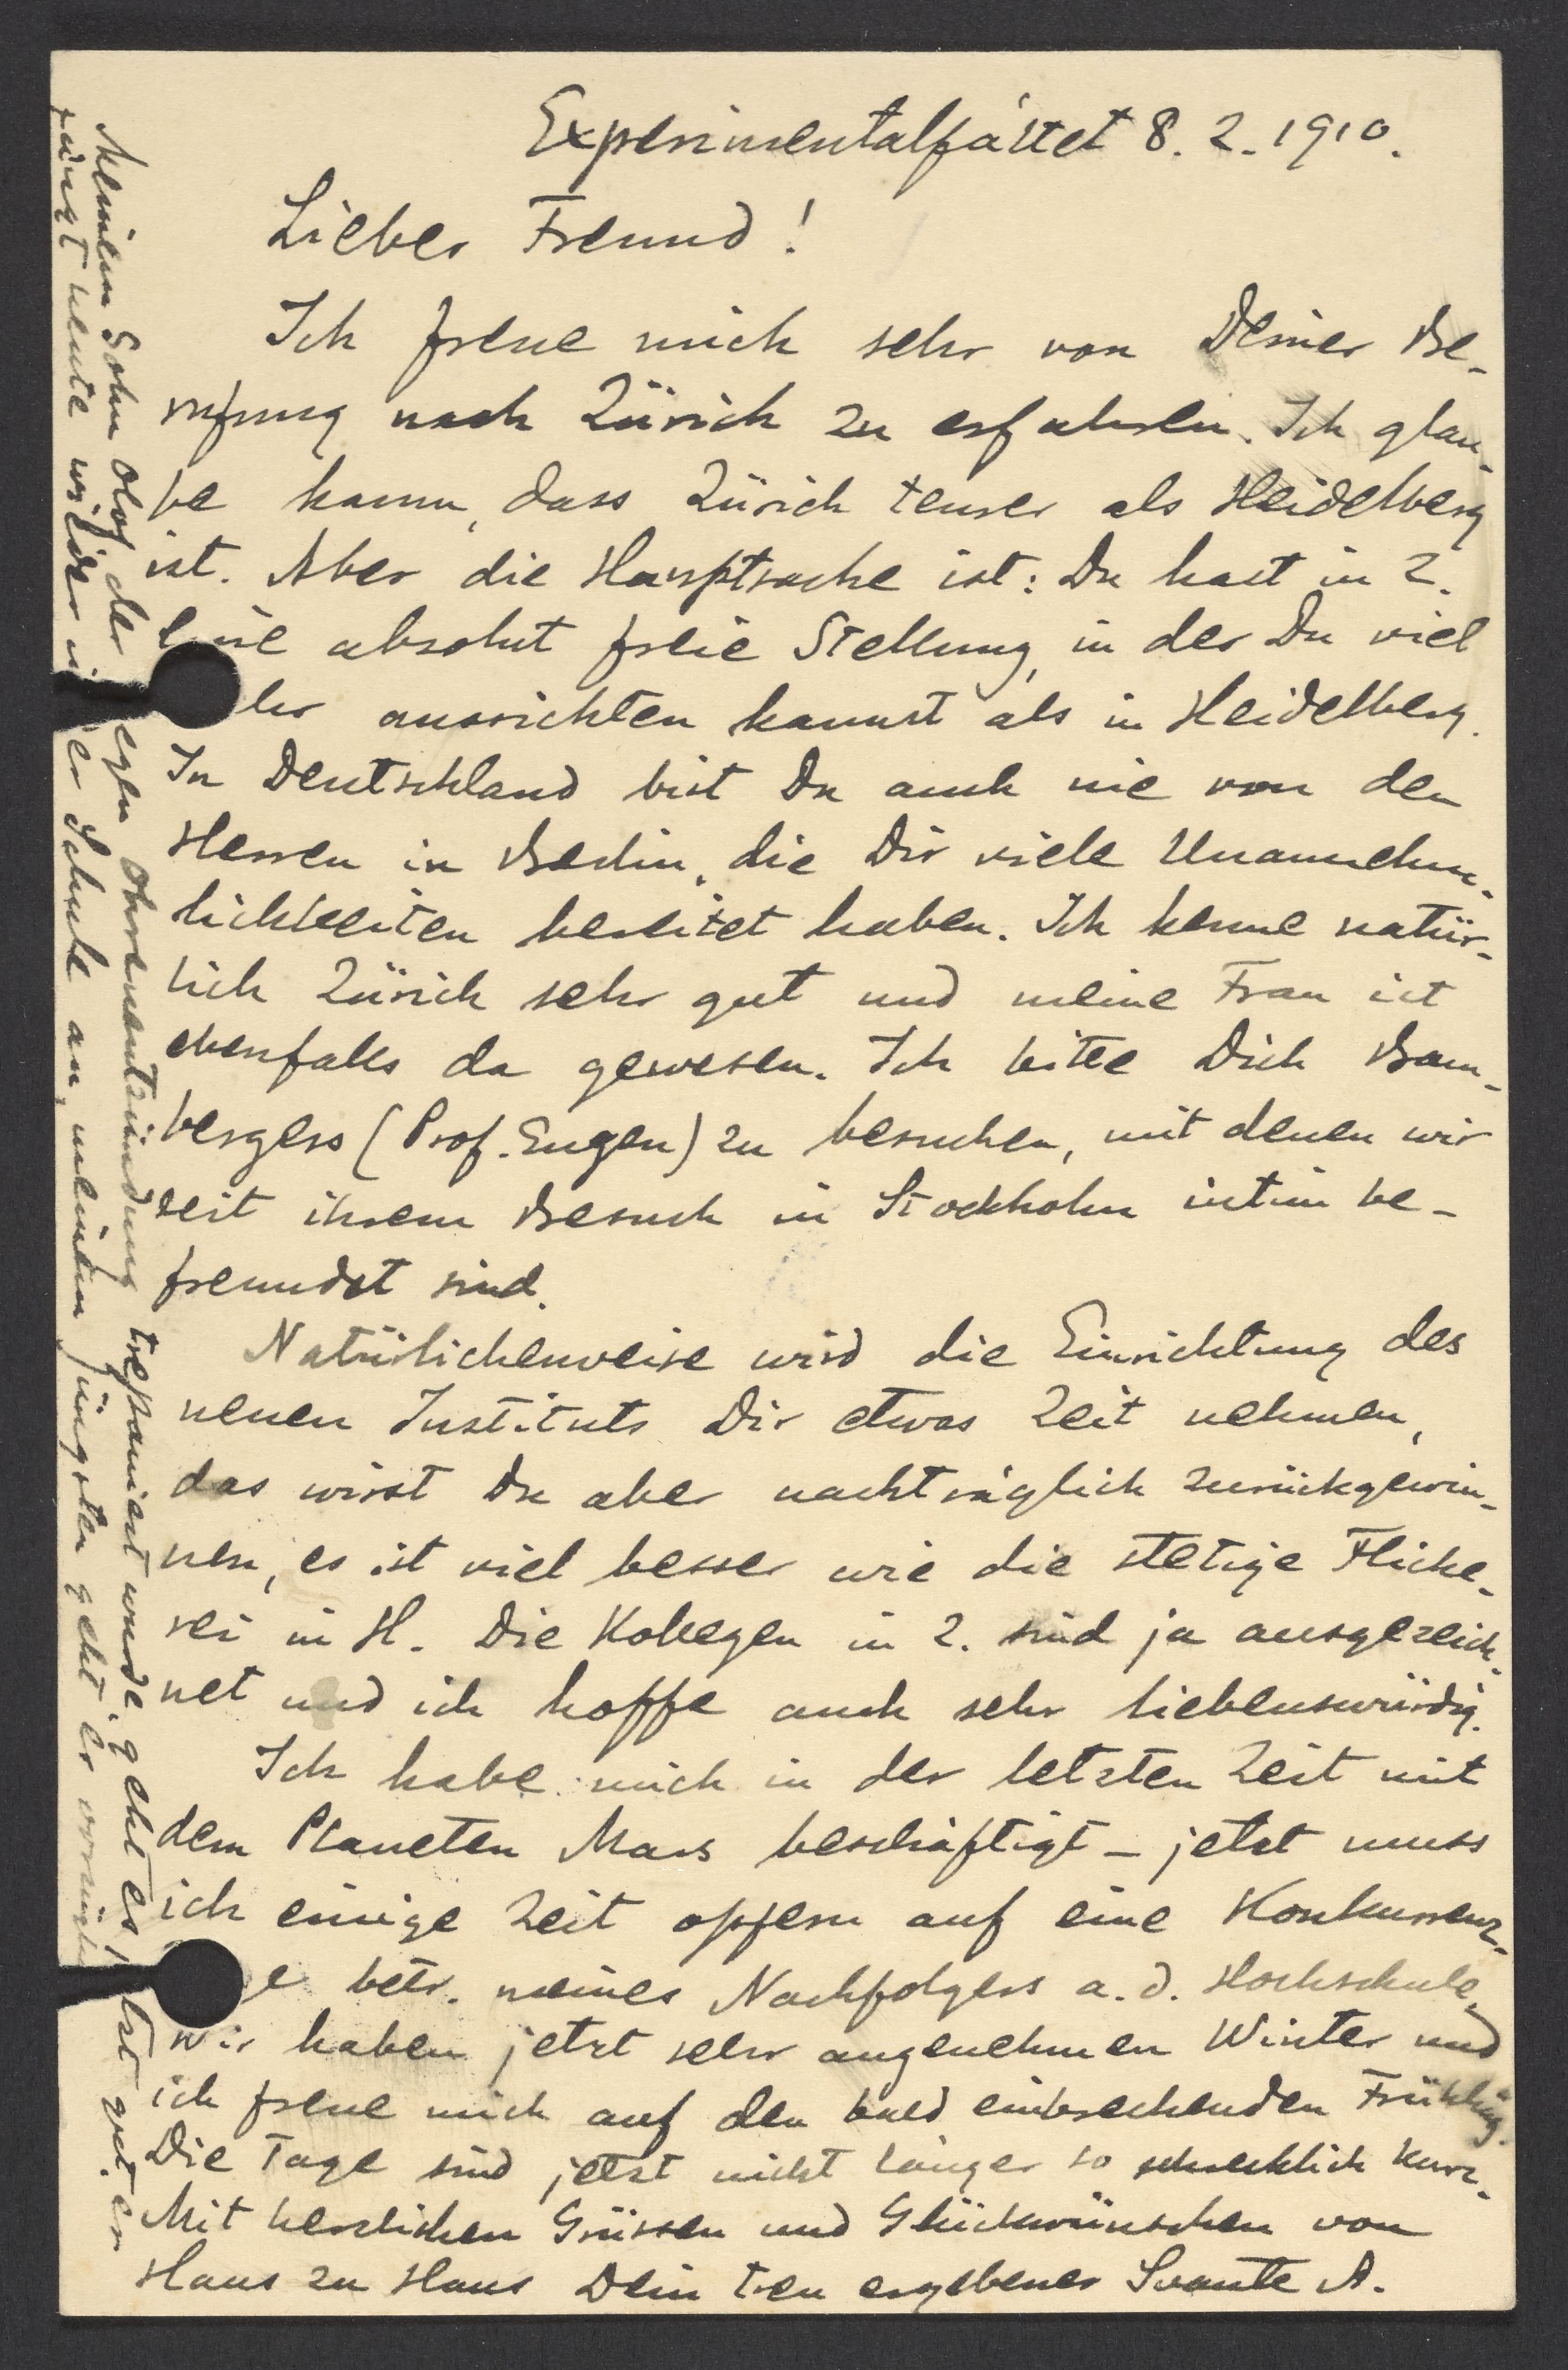 Experimentalfältet 8. 2. 1910.
Lieber Freund!
Ich freue mich sehr von Deiner Be-
rufung nach Zürich zu erfahren. Ich glau-
be kaum, dass Zürich teurer als Heidelberg
ist. Aber die Hauptsache ist: Du hast in Z.
eine absolut freie Stellung, in der Du viel
hr ausrichten kannst als in Heidelberg.
In Deutschland bist Du auch nie von den
Herren in Berlin, die Dir viele Unannehm-
lichkeiten bereitet haben. Ich kenne natür-
lich Zürich sehr gut und meine Frau ist
ebenfalls da gewesen. Ich bitte Dich Bam-
bergers (Prof. Eugen) zu besuchen, mit denen wir
seit ihrem Besuch in Stockholm intim be-
freundet sind.
Natürlichenweise wird die Einrichtung des
neuen Instituts Dir etwas Zeit nehmen,
das wirst Du aber nachträglich zurückgewin-
nen, es ist viel besser wie die stetige Flicke-
rei in H. Die Kollegen in Z. sind ja ausgezeich-
net und ich hoffe auch sehr liebenswürdig.
Ich habe mich in der letzten Zeit mit
dem Planeten Mars beschäftigt – jetzt muss
ich einige Zeit opfern auf eine Konkurrenz-
ge betr. meines Nachfolgers a. d. Hochschule.
Wir haben jetzt sehr angenehmen Winter und
ich freue mich auf den bald einbrechenden Frühling.
Die Tage sind jetzt nicht länger so schrecklich kurz.
Mit herzlichen Grüssen und Glückwünschen von
Haus zu Haus Dein treu ergebener Svante A.
Meinem Sohn Olof der egen Ohrenentzündung trepaniert wurde, geht es tzt gut. er
fängt heute wieder in er Schule an, meinem jüngsten geht es